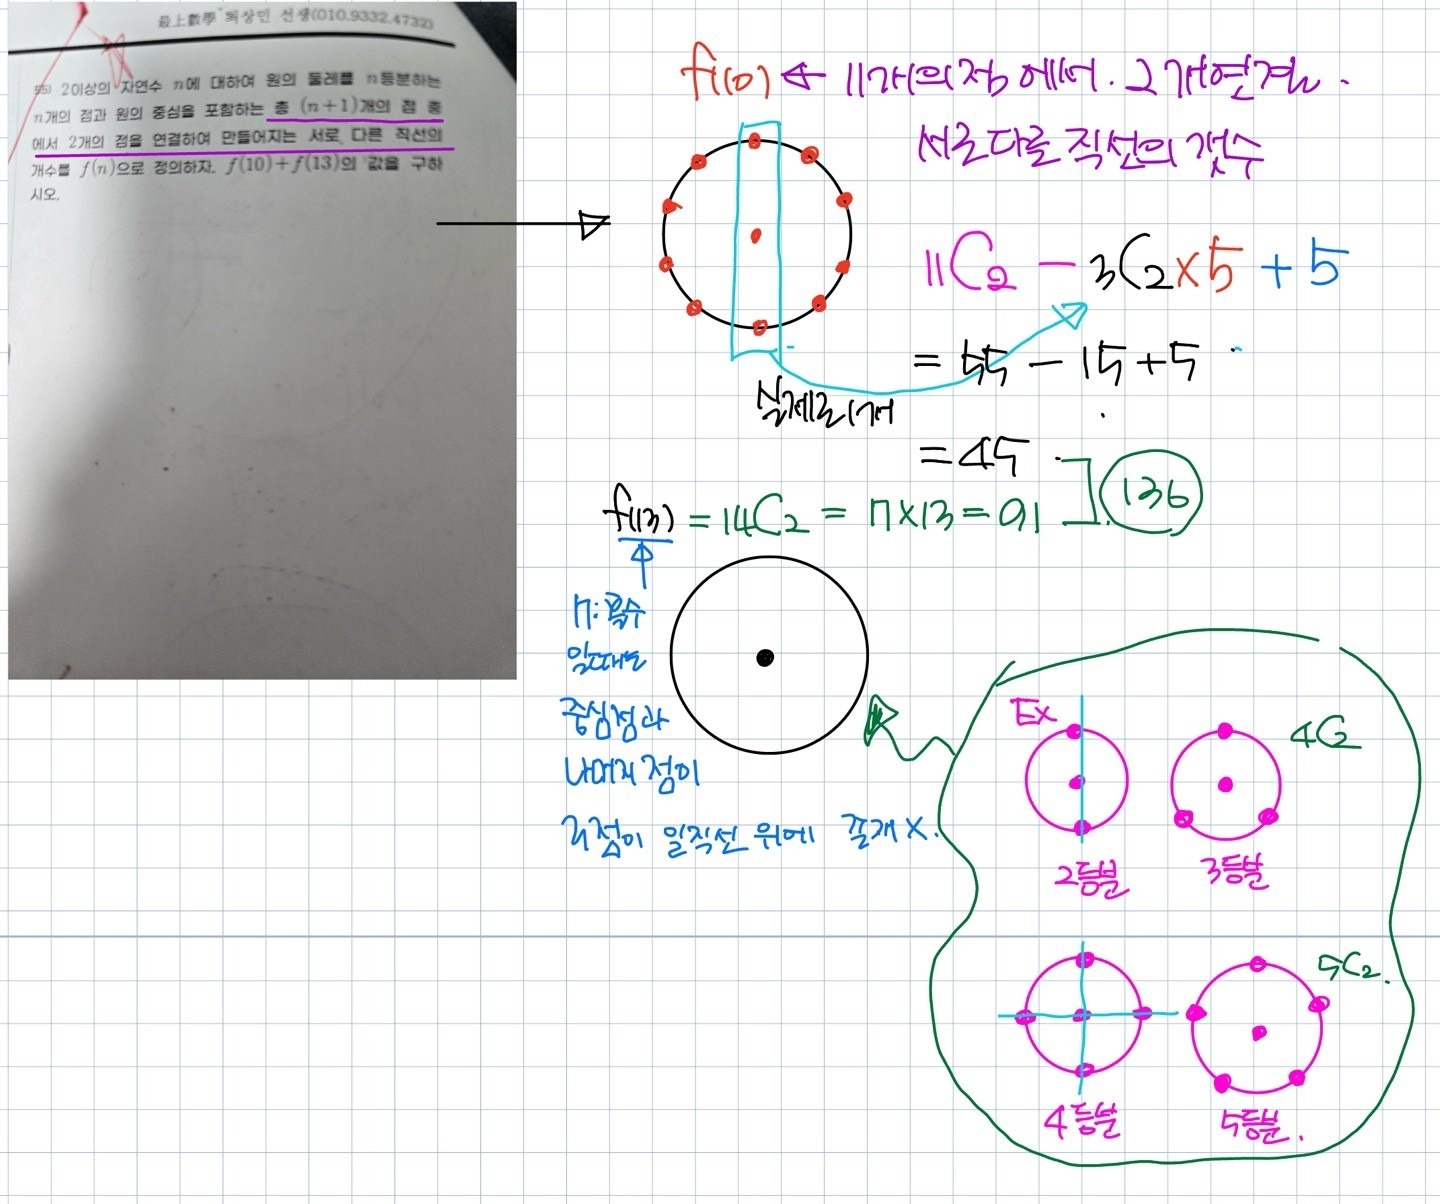 最上數學 선생(010.9332.4732)
55) 2이상의 자연수 n에 대하여 원의 둘레를 n등분하는
n개의 점과 원의 중심을 포함하는 총 (n+1)개의 점 중
에서 2개의 점을 연결하여 만들어지는 서로 다른 직선의
개수를 f(n)으로 정의하자. f(10)+f(13)의 값을 구하
시오.
f(10) ← 11개의 점에서. 2개연결.
서로다를 직선의 갯수
11C2 - 3C2×5 + 5
= 55 - 15 + 5
실제로 1개
= 45
f(13) = 14C2 = 7×13 = 91
136
n: 홀수
일때는
중심점과
나머지 점이
일직선 위에 존재 X.
Ex
4C2
2등분
3등분
5C2.
4등분
5등분.